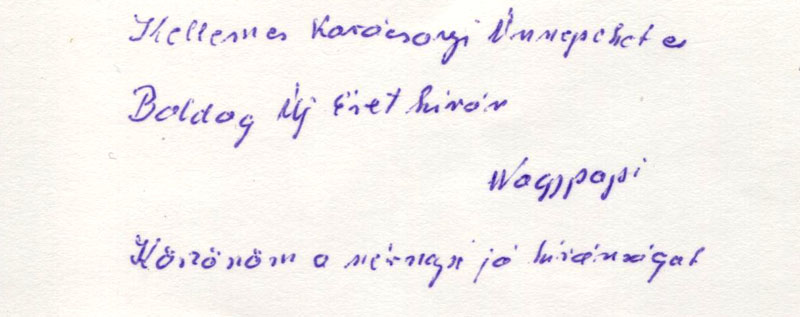 Kellemes Karácsonyi Ünnepeket es
Boldog Új Évet kiván
Nagypapi
Köszönöm a névnapi jó kivánságat